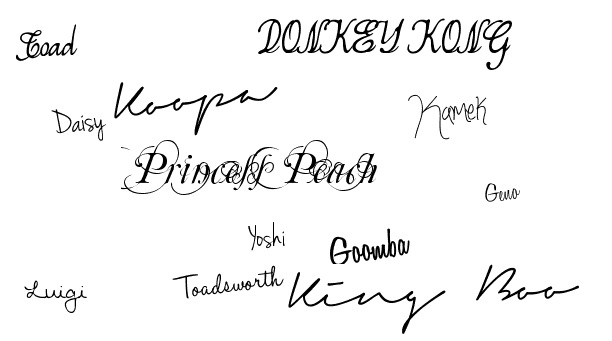 Toad
DONKEY KONG
Daisy
Koopa
Kamek
Princess Peach
Geno
Yoshi
Goomba
Luigi
Toadsworth
King Boo